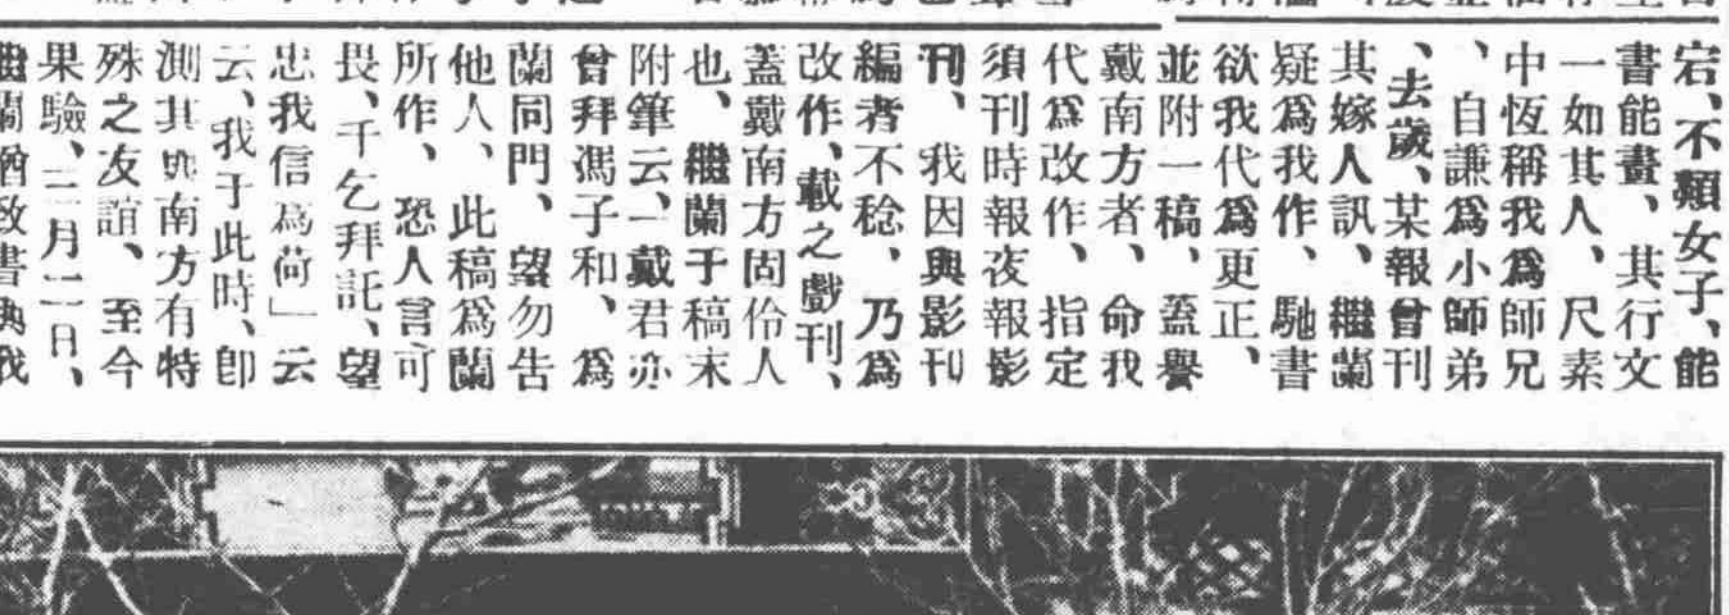 宕、不類女子、能
書能畫、其行文
一如其人、尺素
中恆稱我爲師兄
、自謙爲小師弟
、去歲、某報曾刊
其嫁人訊、繼蘭
疑爲我作、馳書
欲我代爲更正、
並附一稿、蓋譽
戴南方者、命我
代爲改作、指定
須刊時報夜報影
刊、我因與影刊
編者不稔、乃爲
改作、載之戲刊、
蓋戴南方固伶人
也、繼蘭于稿末
附筆云、「戴君亦
曾拜馮子和、爲
蘭同門、望勿告
他人、此稿爲蘭
所作、恐人言可
畏、千乞拜託、望
忠我信爲荷」云
云、我于此時、卽
測其與南方有特
殊之友誼、至今
果驗、三月二日、
繼蘭猶致書與我